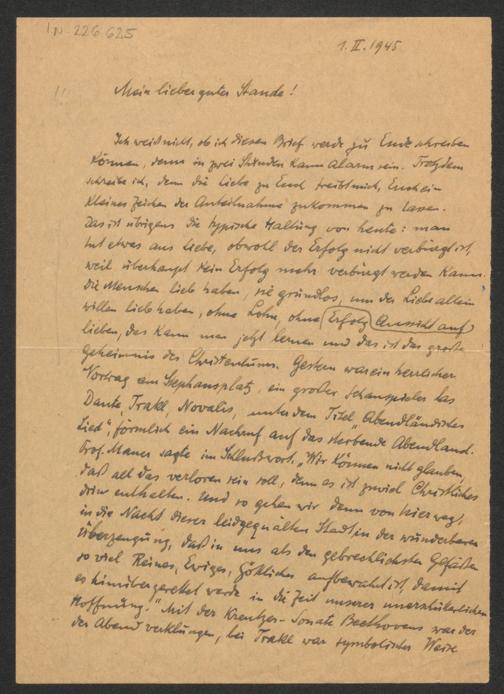 I.N. 226.625
1. II. 1945
Mein lieber guter Stande!
Ich weiß nicht, ob ich diesen Brief werde zu Ende schreiben
können, denn in zwei Stunden kann Alarm sein. Trotzdem
schreibe ich, denn die Liebe zu Euch treibt mich, Euch ein
kleines Zeichen der Anteilnahme zukommen zu lassen.
Das ist übrigens die typische Haltung von heute: man
tut etwas aus Liebe, obwohl der Erfolg nicht verbürgt ist,
weil überhaupt kein Erfolg mehr verbürgt werden kann.
Die Menschen lieb haben, sie grundlos, um der Liebe allein
willen lieb haben, ohne Lohn, ohne Erfolg Aussicht auf
lieben, das kann man jetzt lernen und das ist das große
Geheimnis des Christentums. Gestern war ein herrlicher
Vortrag am Stephansplatz, ein großer Schauspieler las
Dante, Trakl, Novalis, unter dem Titel „Abendländisches
Lied“, förmlich ein Nachruf auf das sterbende Abendland.
Prof. Mauer sagte im Schlußwort: „Wir können nicht glauben,
daß all das verloren sein soll, denn es ist zuviel Christliches
drin enthalten. Und so gehen wir denn von hier weg,
in die Nacht dieser leidgequälten Stadt, in der wunderbaren
Überzeugung, daß in uns als den gebrechlichsten Gefäßen
so viel Reines, Ewiges, Göttliches aufbewahrt ist, damit
es hinübergerettet werde in die Zeit unserer unerschütterlichen
Hoffnung.“ Mit der Kreutzer-Sonate Beethovens war der
der Abend verklungen, bei Trakl war symbolischer Weise